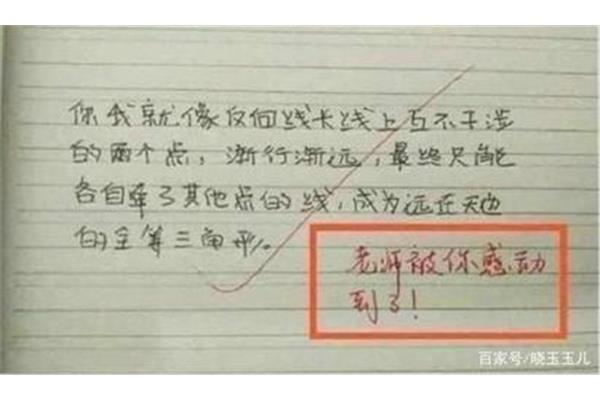 你我就像反向延长线上互不干涉
的两个点，渐行渐远，最终只能
各自牵了其他点的线，成为远在天边
的全等三角形。
老师被你感动
到了！
百家号/晓玉玉儿